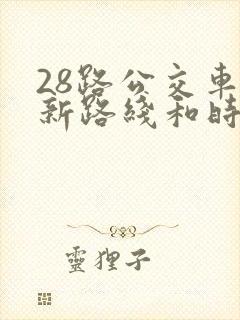 28路公交車
新路綫和時
靈狸子